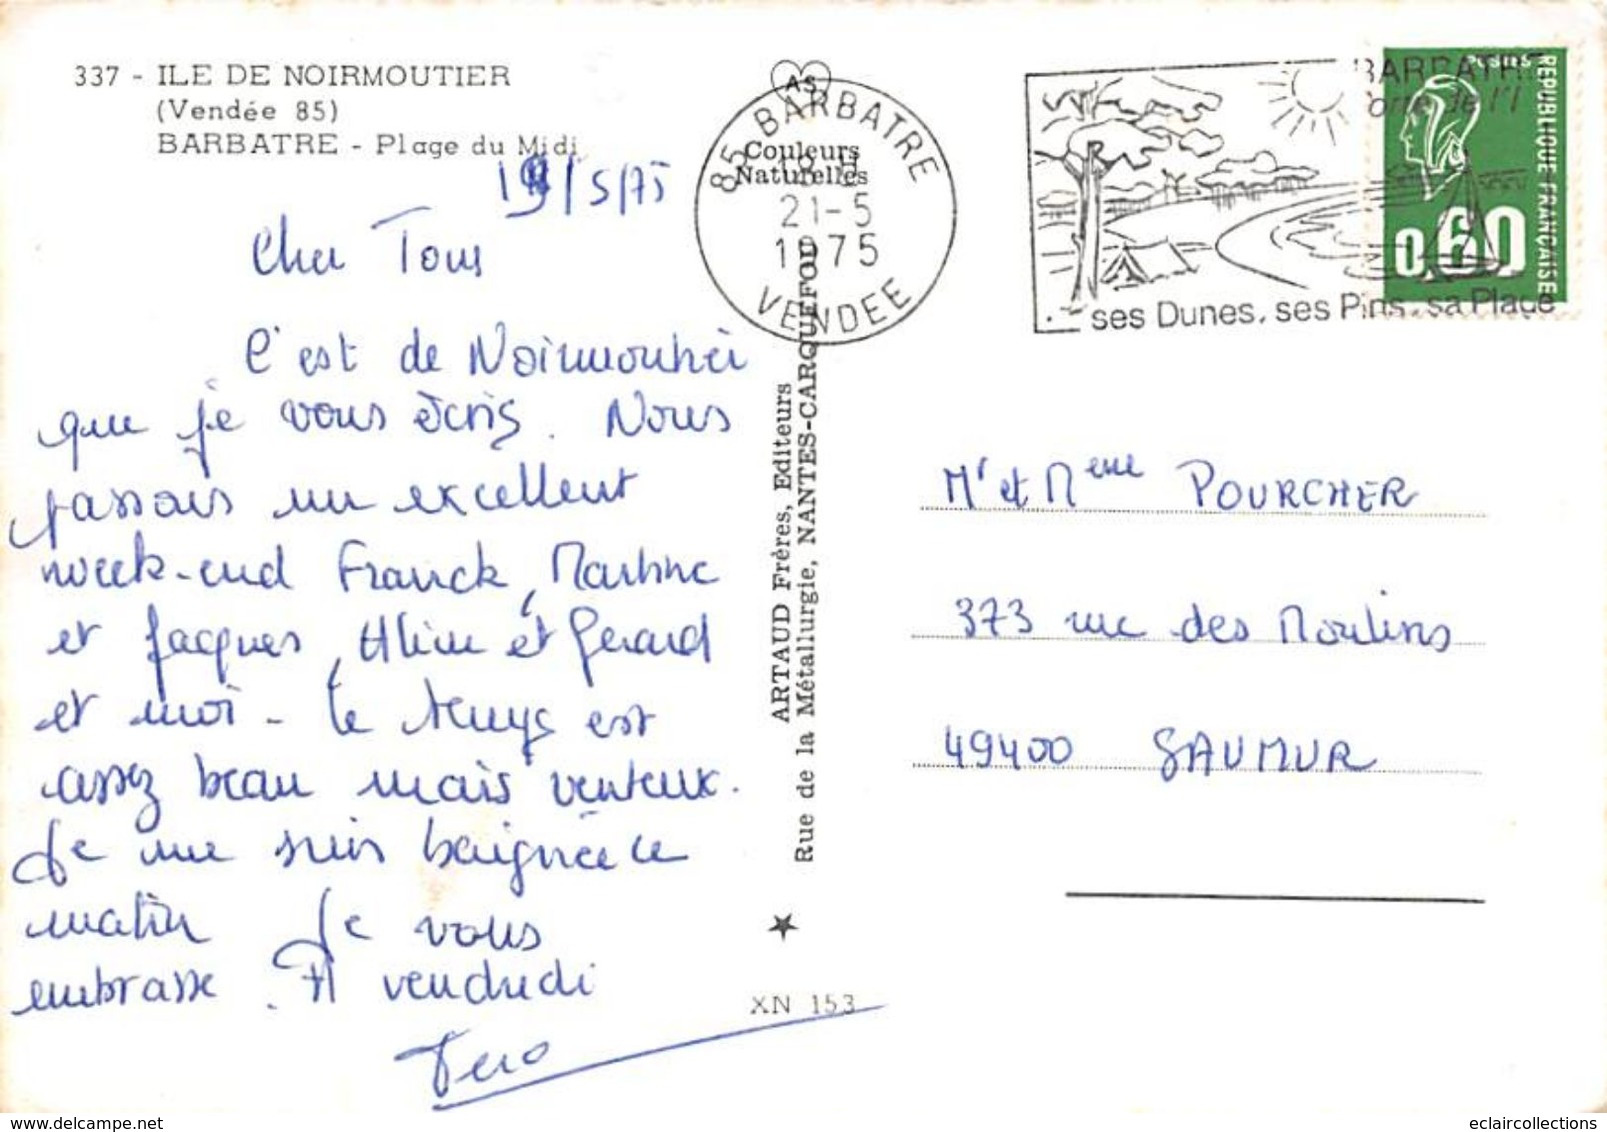 337 - ILE DE NOIRMOUTIER
(Vendée 85)
BARBATRE - Plage du Midi
19/5/75
Cher Tous
C'est de Noirmoutier
que je vous écris. Nous
passons un excellent
week-end Franck, Martine
et Jacques, Aline et Gérard
et moi - le temps est
assez beau mais venteux.
Je me suis baignée ce
matin Je vous
embrasse. A vendredi
Vero
AS
Couleurs
Naturelles
85 BARBATRE
18 H
21-5
1975
VENDEE
ARTAUD Frères, Editeurs
Rue de la Métallurgie, NANTES-CARQUEFOU
XN 153
BARBATRE
de l'I
ses Dunes, ses Pins, sa Plage
POSTES
REPUBLIQUE FRANÇAISE
0,60
Mr et Mme POURCHER
373 rue des Moulins
49400 SAUMUR
www.delcampe.net
eclaircollections